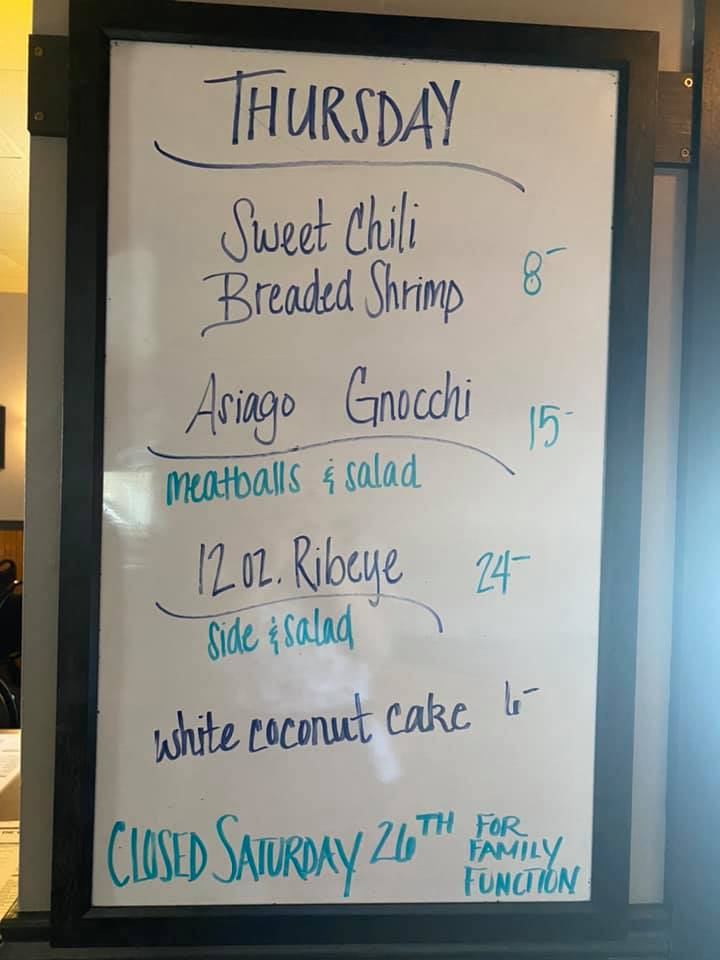 THURSDAY
Sweet Chili
Breaded Shrimp 8-
Asiago Gnocchi 15-
meatballs & salad
12 oz. Ribeye 24-
side & salad
white coconut cake 6-
CLOSED SATURDAY 26TH FOR
FAMILY
FUNCTION